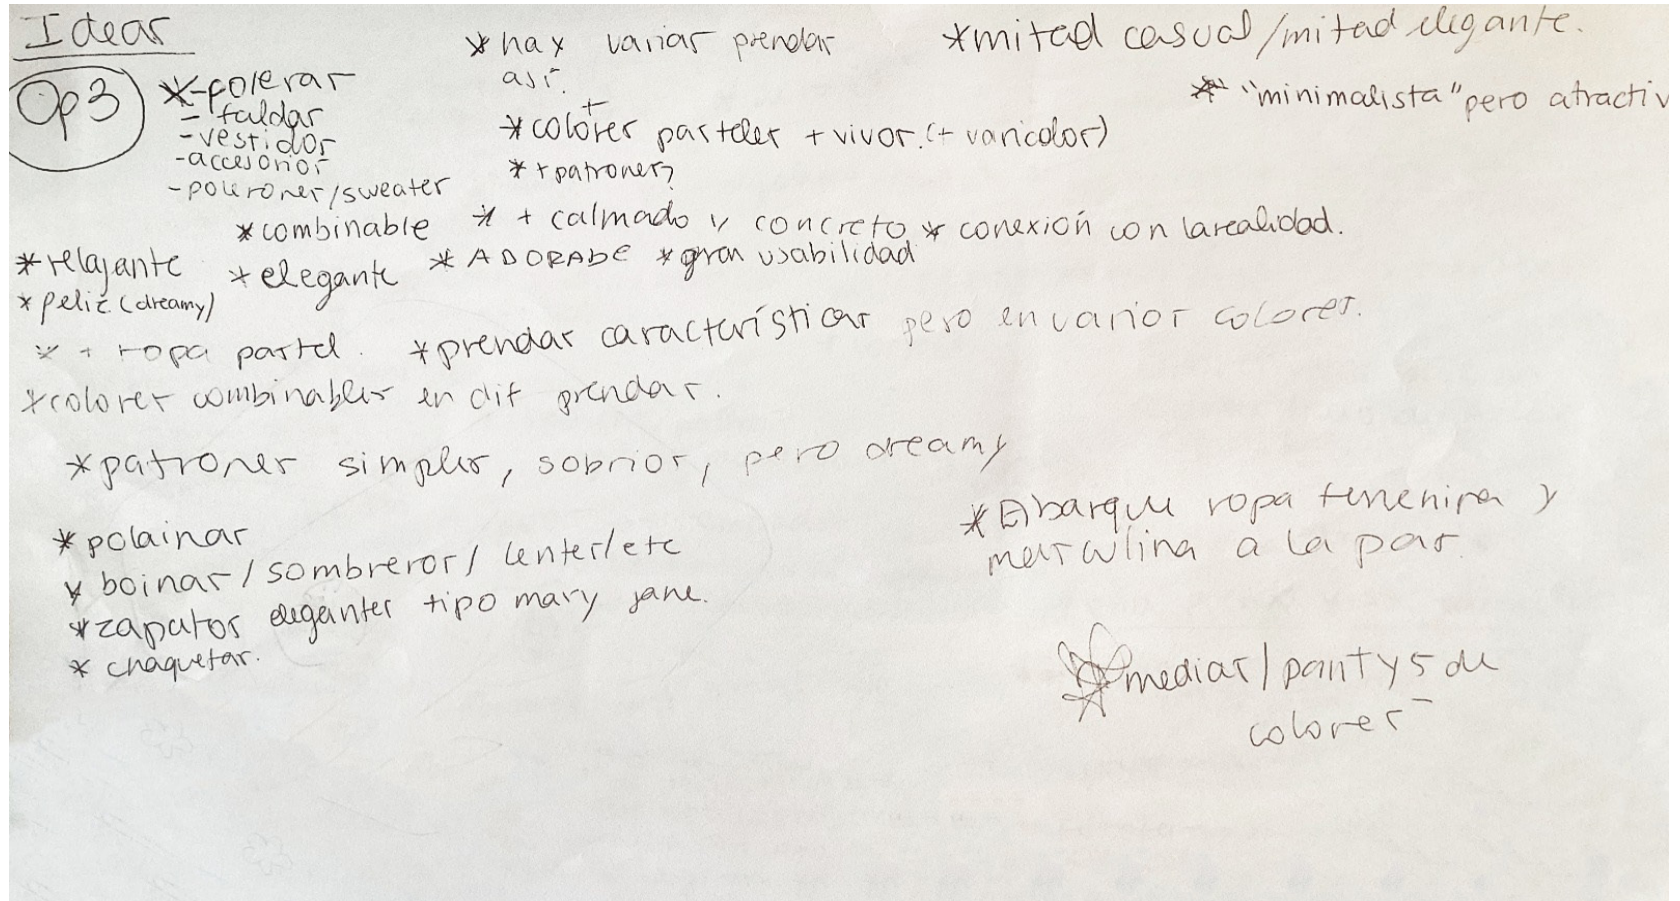 Ideas
Op3
* - poleras
- faldas
- vestidos
- accesorios
- polerones/sweater
* hay varias prendas
así.
* mitad casual/mitad elegante.
* "minimalista" pero atractiv
+
* colores pasteles + vivos. (+ varicolor)
* + patrones?
* combinable
* + calmado y concreto * conexión con la realidad.
* relajante * elegante * ADORABE * gran usabilidad
* (dreamy)
* + ropa pastel. * prendas características pero en varios colores.
* colores combinables en dif prendas.
* patrones simples, sobrios, pero dreamy
* polainas
* boinas/sombreros/lentes/etc
* zapatos elegantes tipo mary jane.
* chaquetas.
* Abarque ropa femenina y
masculina a la par.
* medias/pantys de
colores